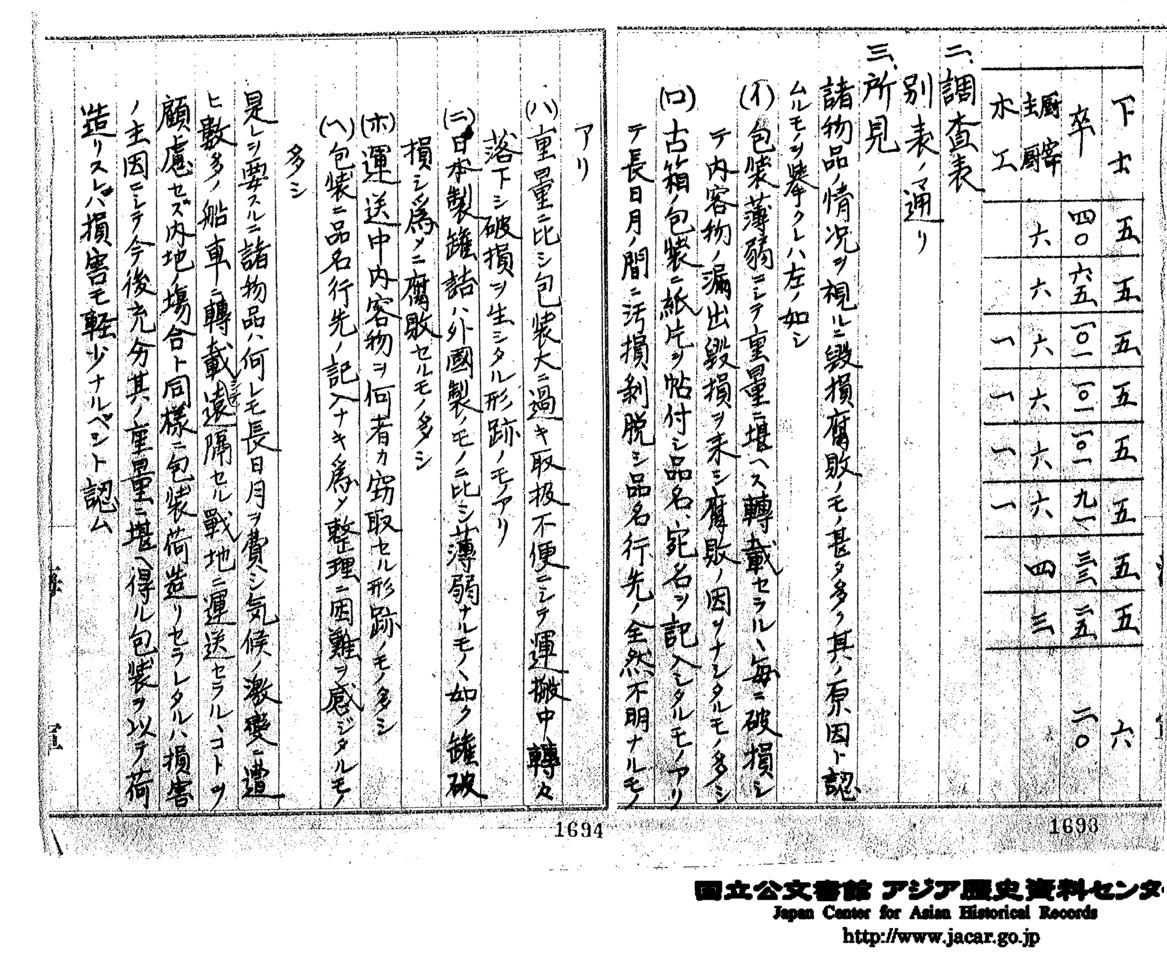 下士 五 五 五 五 五 五 五 五 六
卒 四〇 六五 一〇一 一〇一 一〇一 九一 三三 二五 二〇
厨宰 主厨 六 六 六 六 六 六 四 三
木工 一 一 一 一
二、調査表
別表ノ通リ
三、所見
諸物品ノ情況ヲ視ルニ毀損腐敗ノモノ甚タ多ク其ノ原因ト認
ムルモノヲ挙クレハ左ノ如シ
(イ)包装薄弱ニシテ重量ニ堪ヘス轉載セラルヽ毎ニ破損シ
テ内容物ノ漏出毀損ヲ来シ腐敗ノ因ヲナシタルモノ多シ
(ロ)古箱ノ包装ニ紙片ヲ帖付シ品名、宛名ヲ記入シタルモノアリ
テ長日月ノ間ニ汚損剥脱シ品名行先ノ全然不明ナルモノ
アリ
(ハ)重量ニ比シ包装大ニ過キ取扱不便ニシテ運搬中轉々
落下シ破損ヲ生シタル形跡ノモノアリ
(ニ)日本製罐詰ハ外國製ノモノニ比シ薄弱ナルモノヽ如ク罐破
損シ為メニ腐敗セルモノ多シ
(ホ)運送中内容物ヲ何者カ窃取セル形跡ノモノ多シ
(ヘ)包装ニ品名行先ノ記入ナキ為メ整理ニ困難ヲ感ジタルモノ
多シ
是レヲ要スルニ諸物品ハ何レモ長日月ヲ費シ気候ノ激変ニ遭
ヒ数多ノ船車ニ轉載シテ遠隔セル戰地ニ運送セラルヽコトヲ
顧慮セズ内地ノ場合ト同様ニ包装荷造リセラレタルハ損害
ノ主因ニシテ今後充分其ノ重量ニ堪ヘ得ル包装ヲ以テ荷
造リスレバ損害モ軽少ナルベシト認ム
海
軍
1693
1694
国立公文書館 アジア歴史資料センタ
Japan Center for Asian Historical Records
http://www.jacar.go.jp